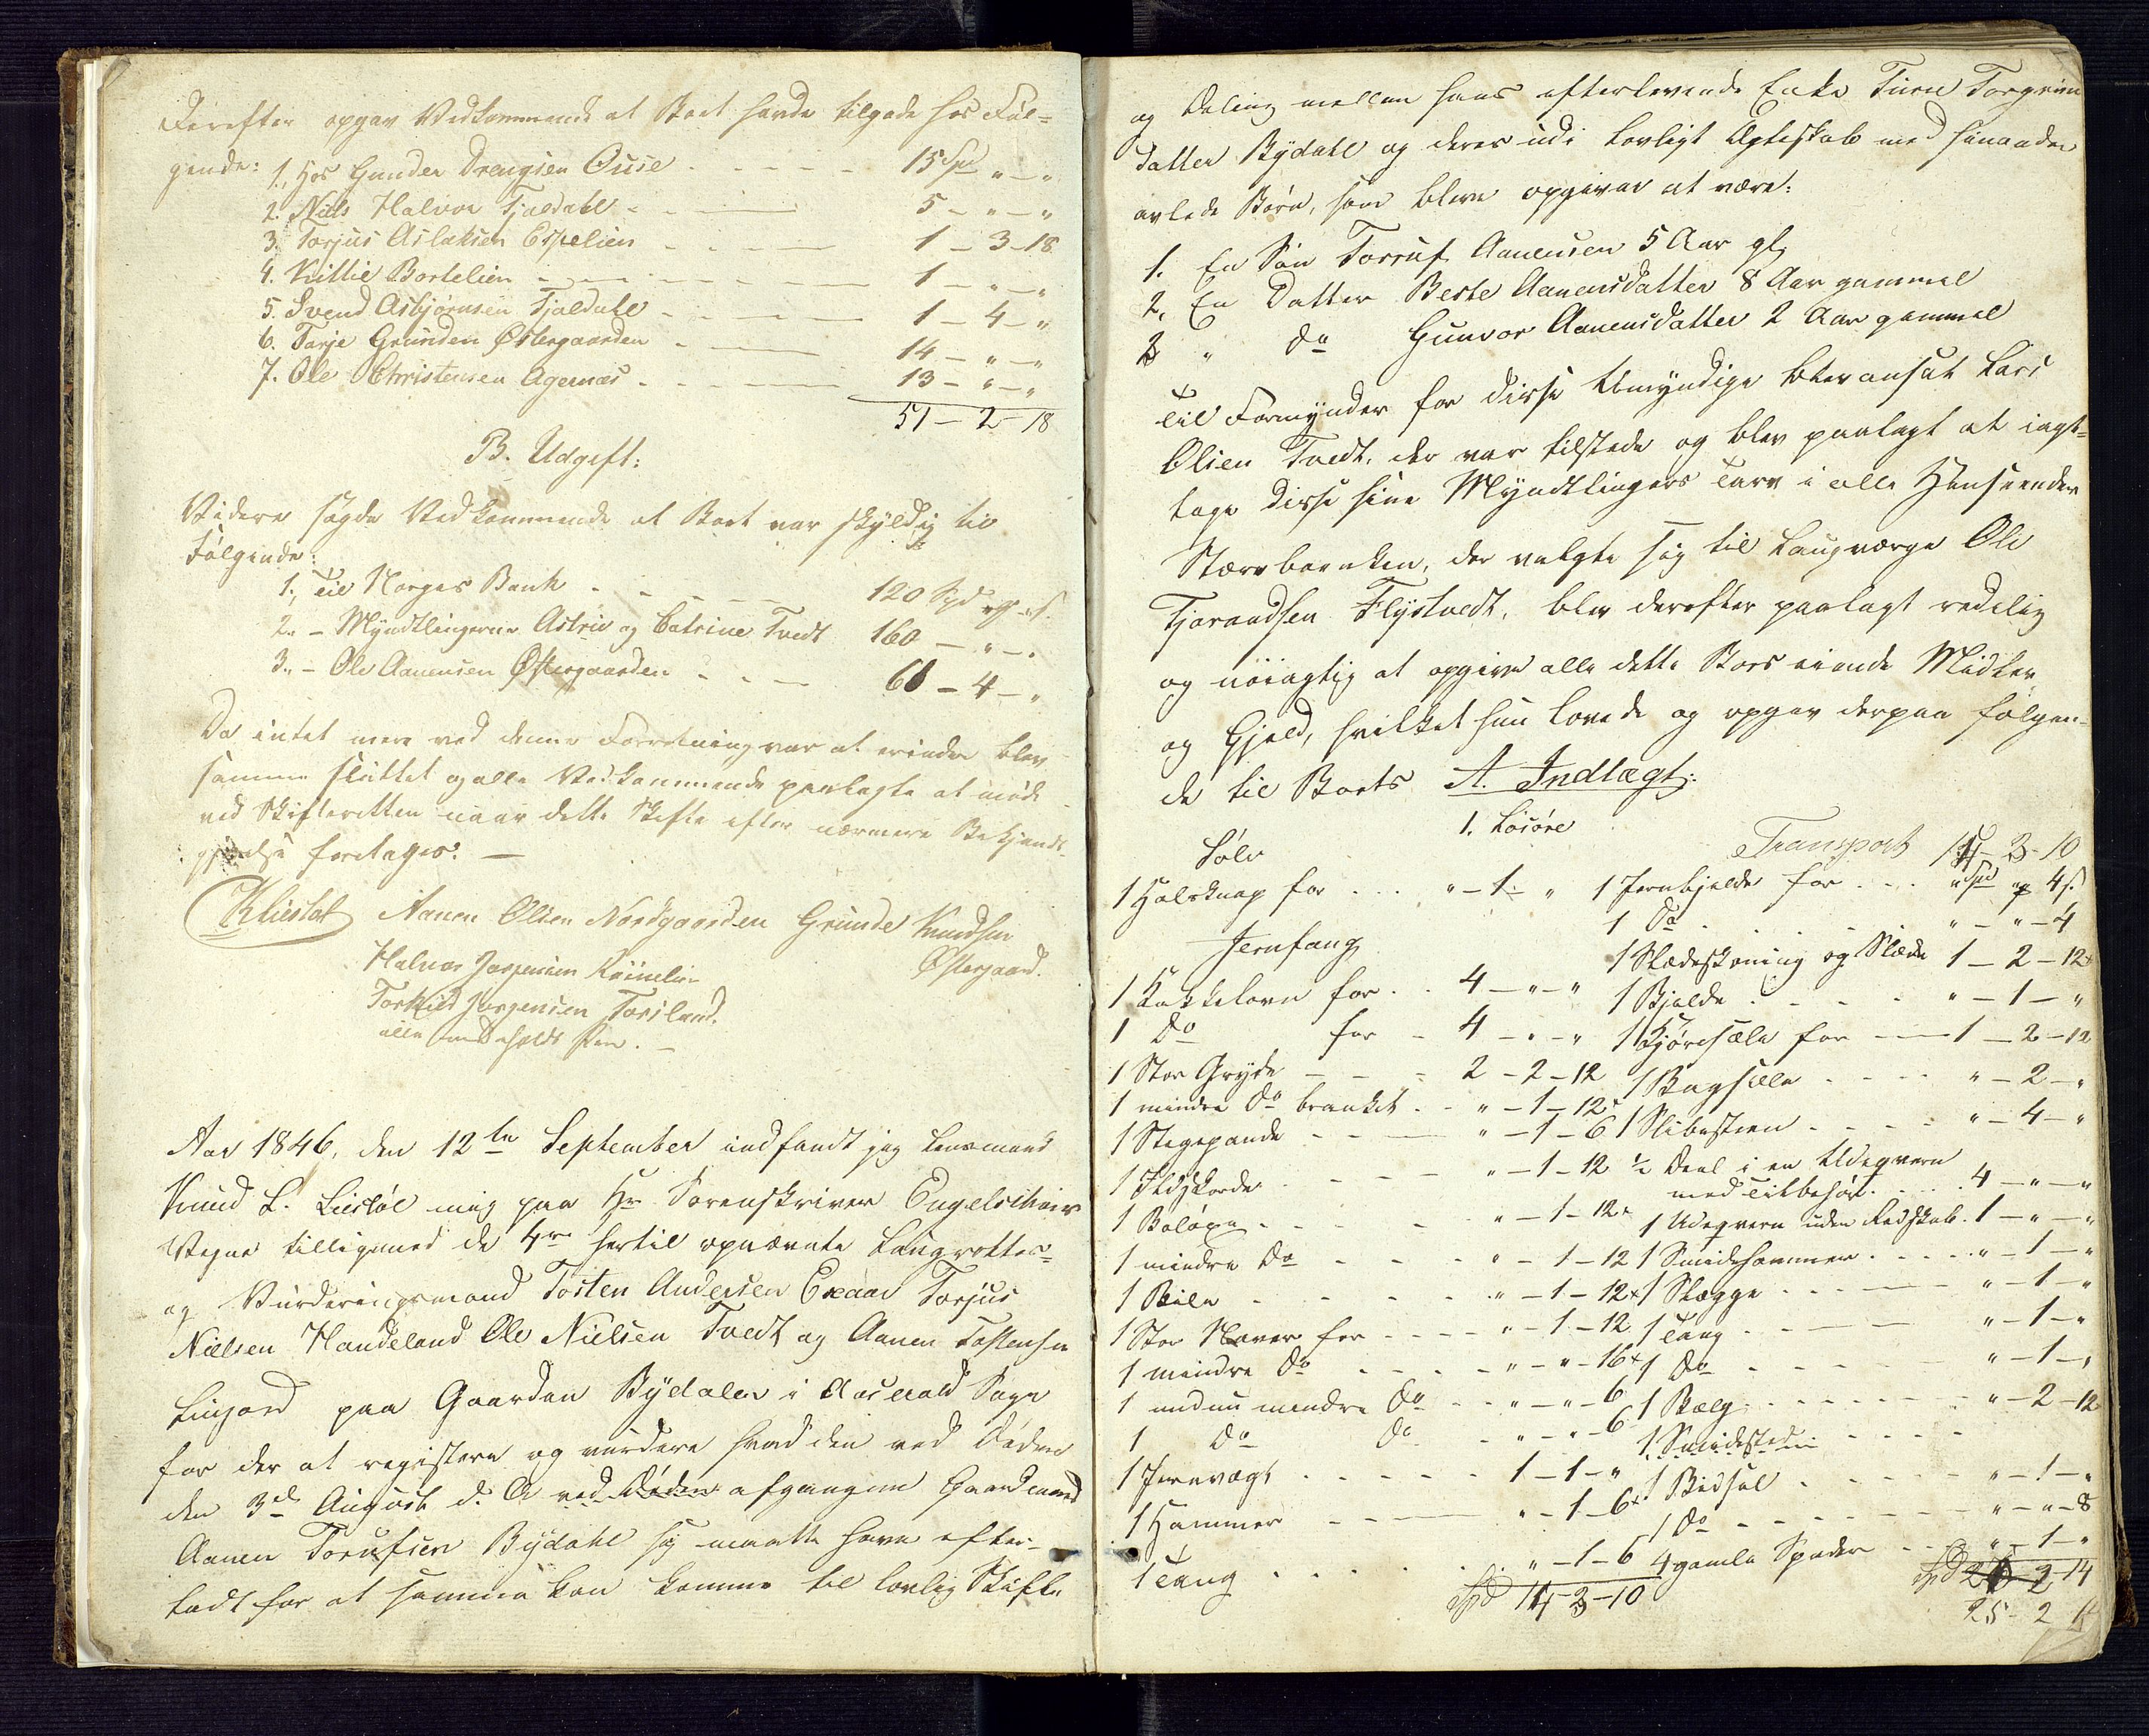 Derefter opgav Vedkommende at Boet havde tilgode hos Føl-
gende:
1., Hos Gunder Drengsen Ouse 15 Spd " - "
2. Niels Halvor Fjaldahl 5 - " - "
3. Torjus Aslaksen Espelien 1 - 3 - 18
4. Kittil Bortelien 1 - " - "
5. Svend Asbjørnsen Fjaldahl 1 - 4 - "
6. Tarje Grunden Østergaarden 14 - " - "
7. Ole Christensen Agernæs 13 - " - "
51 - 2 - 18
B. Udgift:
Videre sagde Vedkommende at Boet var skyldig til
Følgende:
1., Til Norges Bank 120 Spd
2. - Myndtlingerne Astrie og Catrine Tvedt 160 - " - "
3. - Ole Aanensen Østergaarden 61 - 4 - "
Da intet mere ved denne Forretning var at erindre blev
samme sluttet og alle Vedkommende paalagte at møde
ved Skifteretten naar dette Skifte efter nærmere Bekjendt-
gjørelse foretages. -
KLiestøl Aanen Olsen Nordgaarden Grunde Knudsen
Østergaard.
Halvor Jørgensen
Torkild Jørgensen Torsland.
alle med holdt Pen. -
Aar 1846, den 12te September indfandt jeg Lensmand
Knud L. Liestøl mig paa Hr Sorenskriver Engelschiøn
Vegne tilligemed de 4re hertil opnævnte Laugrettes-
og Vurderingsmænd Tosten Andersen Exaae Torjus
Nielsen Handeland Ole Nielsen Tvedt og Aanen Tostensen
Lingard paa Gaarden Bydalen i Aaserald Sogn
for der at registere og vurdere hvad den ved Døden
den 3de August d. A. ved Døden afgangne Gaardmand
Aanen Torufsen Bydahl sig maatte have efter-
ladt for at samme kan komme til lovlig Skifte
og Deling mellem hans efterlevende Enke Turu Torgrim
datter Bydahl og deres udi lovligt Ægteskab med hinanden
avlede Børn, som bleve opgivne at være:
1. En Søn Torruf Aanensen 5 Aar gl
2, En Datter Berte Aanensdatter 8 Aar gammel
3 " do Gunvor Aanensdatter 2 Aar gammel
Til Formynder for disse Umyndige blev ansat Lars
Olsen Tvedt, der var tilstede og blev paalagt at iagt-
tage disse sine Myndtlingers Tarv i alle Henseender
Stærvboenken, der valgte sig til Laugværge Ole
Tjorandsen Flystvedt, blev derefter paalagt redelig
og nøiagtig at opgive alle dette Boes eiende Midler
og Gjeld, hvilket hun lovede og opgav derpaa følgen-
de til Boets A. Indtægt:
1. Løsøre
Sølv
1 Halsknap for " - 1 - "
Jernfang
1 Kakkelovn for 4 - " - "
1 do for 4 - " - "
1 Stor Gryde 2 - 2 - 12
1 mindre do brukket " - 1 - 12
1 Stegepande " - 1 - 6
1 Ildskarde " - 1 - 12
1 Boløxe " - 1 - 12
1 mindre do " - 1 - 12
1 Bile " - 1 - 12
1 Stor Naver for " - 1 - 12
1 mindre do " - " - 16
1 endnu mindre do " - " - 6
1 do do " - " - 6
1 Jernvægt 1 - 1 - "
1 Hammer " - 1 - 6
1 Tang " - 1 - 6
Spd 14 - 3 - 10
Transport 14 - 3 - 10
1 Jernbjelde for " Spd " 4 s.
1 do " - " - 4
1 Slædeskoning og Slæde 1 - 2 - 12
1 Bjelde " - 1 - "
1 Kjøresæle for 1 - 2 - 12
1 Bagsæle " - 2 - "
1 Slibesteen " - 4 - "
1/2 Deel i en Udeqvern
med Tilbehør 4 - " - "
1 Udeqvern uden Redskab 1 - " - "
1 Smidehammer " - 1 - "
1 Slægge " - 1 - "
1 Tang " - 1 - "
1 do " - 1 - "
1 Bælg " - 2 - 12
1 Smidestedie
1 Bidsel " - 1 - "
1 do " - " - 8
4 gamle Spader " - 1 - "
Spd 2 - 14
25 - 2 14